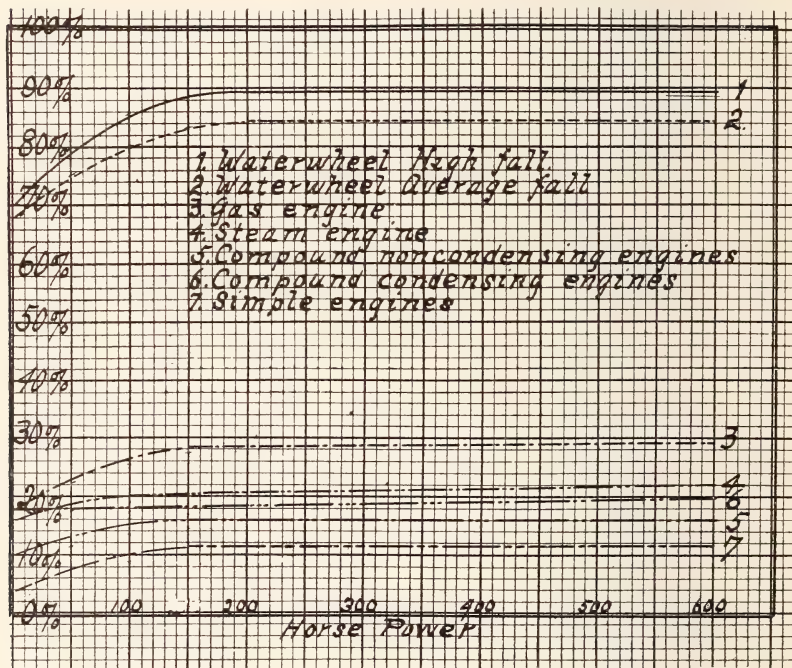 100%
90%
1
2.
80%
1. Waterwheel High fall.
2. Waterwheel Average fall
70%
3. Gas engine
4. Steam engine
5. Compound noncondensing engines
60%
6. Compound condensing engines
7. Simple engines
50%
40%
30%
3
4
20%
6
5
10%
7
0%
100 200 300 400 500 600
Horse Power